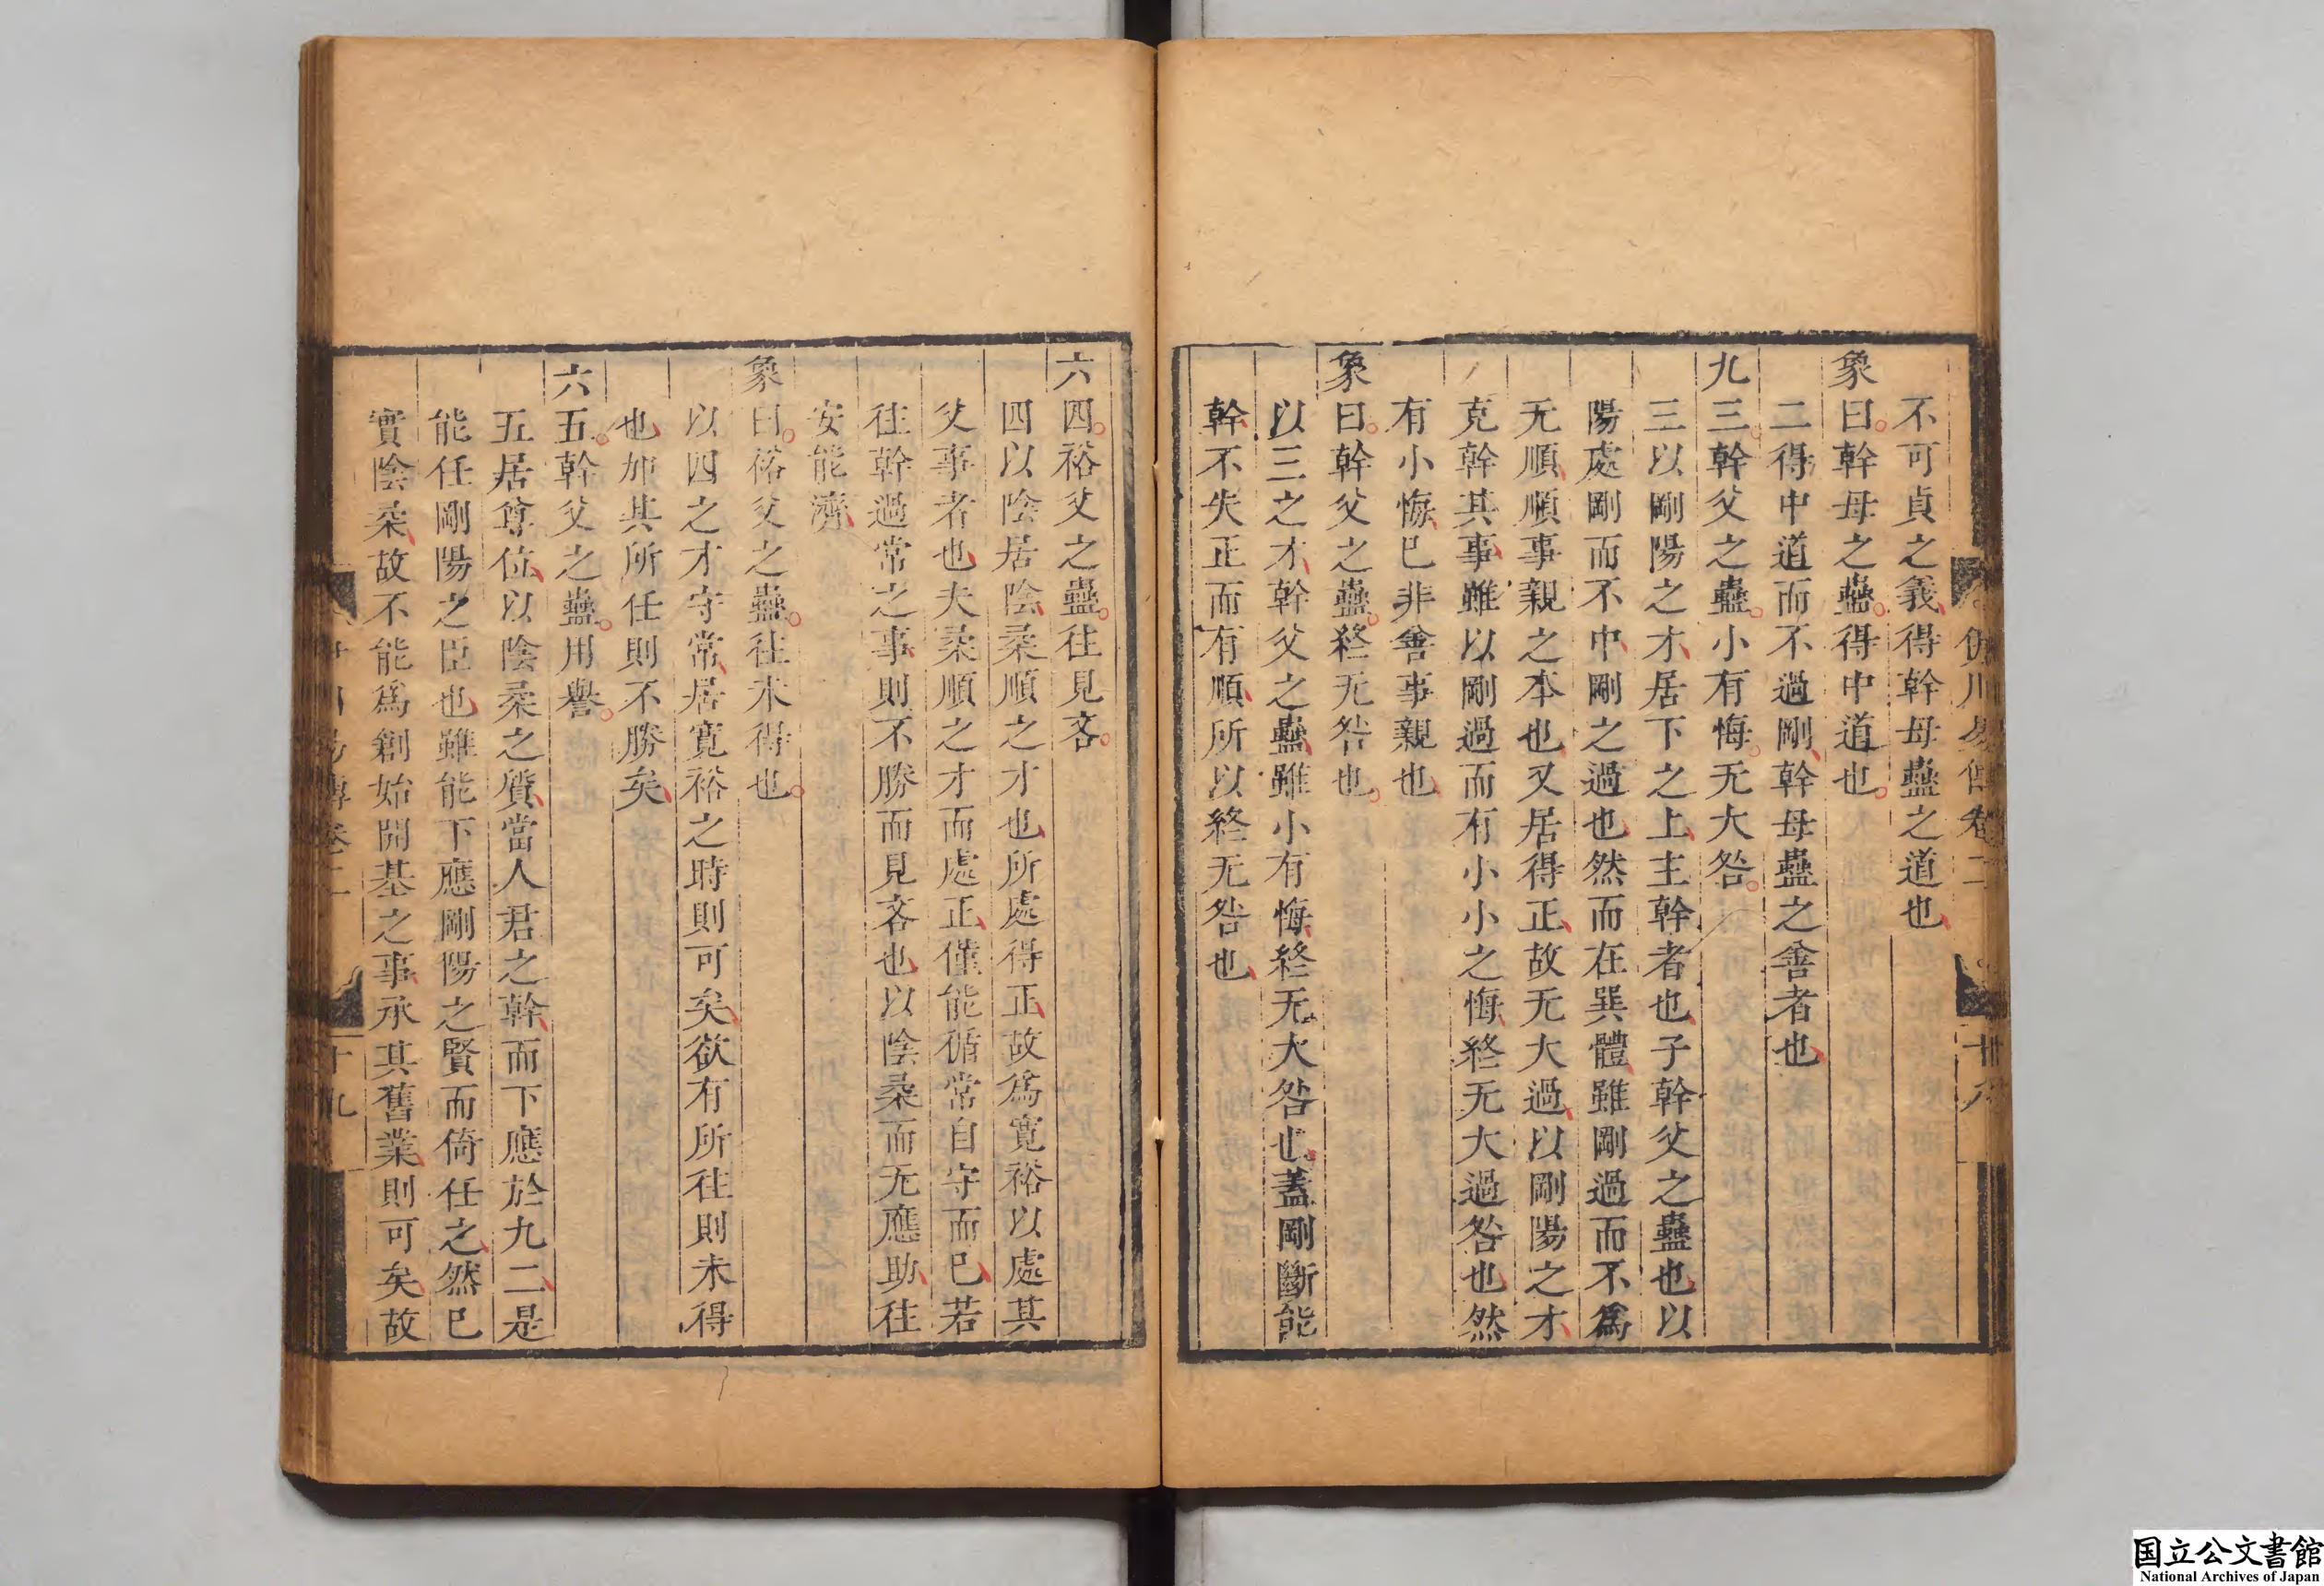 不可貞之義得幹母蠱之道也
象曰幹母之蠱得中道也
二得中道而不過剛幹母蠱之善者也
九三幹父之蠱小有悔无大咎
三以剛陽之才居下之上主幹者也子幹父之蠱也以
陽處剛而不中剛之過也然而在巽體雖剛過而不爲
无順順事親之本也又居得正故无大過以剛陽之才
克幹其事雖以剛過而有小小之悔終无大過咎也然
有小悔已非善事親也
象曰幹父之蠱終无咎也
以三之才幹父之蠱雖小有悔終无大咎也蓋剛斷能
幹不失正而有順所以終无咎也
六四裕父之蠱往見吝
四以陰居陰柔順之才也所處得正故爲寬裕以處其
父事者也夫柔順之才而處正僅能循常自守而已若
往幹過常之事則不勝而見吝也以陰柔而无應助往
安能濟
象曰裕父之蠱往未得也
以四之才守常居寬裕之時則可矣欲有所往則未得
也加其所任則不勝矣
六五幹父之蠱用譽
五居尊位以陰柔之質當人君之幹而下應於九二是
能任剛陽之臣也雖能下應剛陽之賢而倚任之然已
實陰柔故不能爲創始開基之事承其舊業則可矣故
国立公文書館
National Archives of Japan